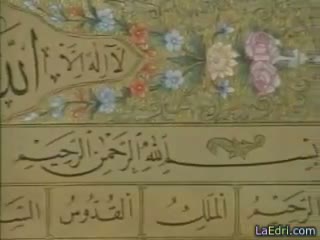 لا اله الا الله
بسم الله الرحمن الرحيم
الرحيم الملك القدوس السـ
LaEdri.com